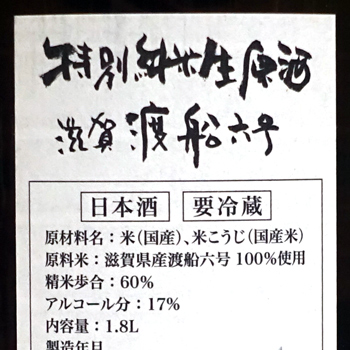 特別純米生原酒
滋賀渡船六号
日本酒 要冷蔵
原材料名：米（国産）、米こうじ（国産米）
原料米：滋賀県産渡船六号100%使用
精米歩合：60%
アルコール分：17%
内容量：1.8L
製造年月